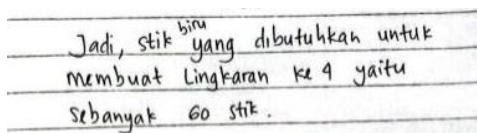 Jadi, stik biru yang dibutuhkan untuk
membuat Lingkaran ke 4 yaitu
sebanyak 60 stik.